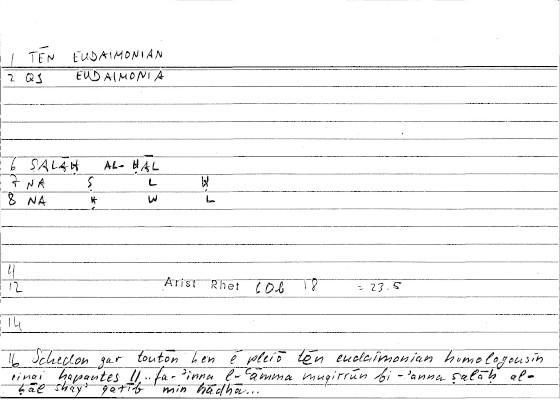 1 TĒN EUDAIMONIAN
2 QS EUDAIMONIA
6 ṢALĀḤ AL-ḤĀL
7 NA Ṣ L Ḥ
8 NA Ḥ W L
11
12 Arist Rhet 60b 18 = 23.5
14
16 Schedon gar toutōn hen ē pleiō tēn eudaimonian homologousin
einai hapantes || ..fa-'inna l-'āmma muqirrūn bi-'anna ṣalāḥ al-
ḥāl shay' qarīb min hādhā...